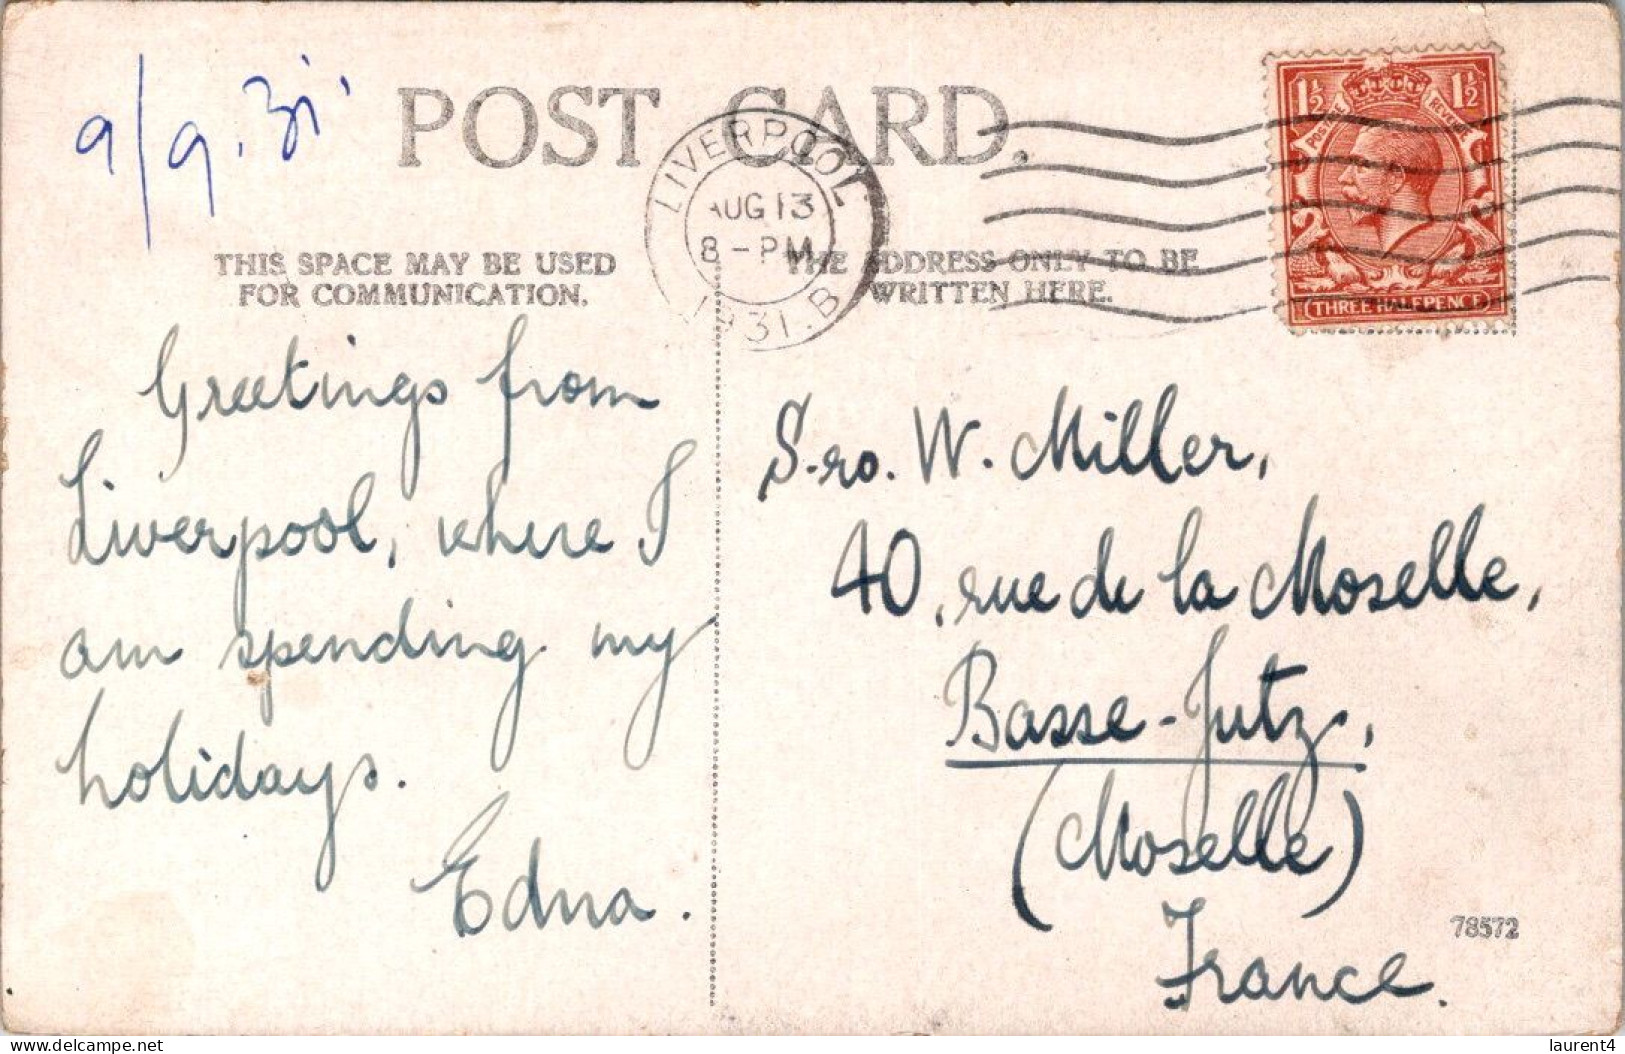 9/9.31.
POST CARD.
LIVERPOOL
AUG 13
8 - PM
1931. B
1½ 1½
POSTAGE REVENUE
THREE HALFPENCE
THIS SPACE MAY BE USED
FOR COMMUNICATION.
THE ADDRESS ONLY TO BE
WRITTEN HERE.
Greetings from
Liverpool, where I
am spending my
holidays.
Edna.
S-ro. W. Miller,
40, rue de la Moselle,
Basse-Jutz,
(Moselle)
France.
78572
delcampe.net
laurent4